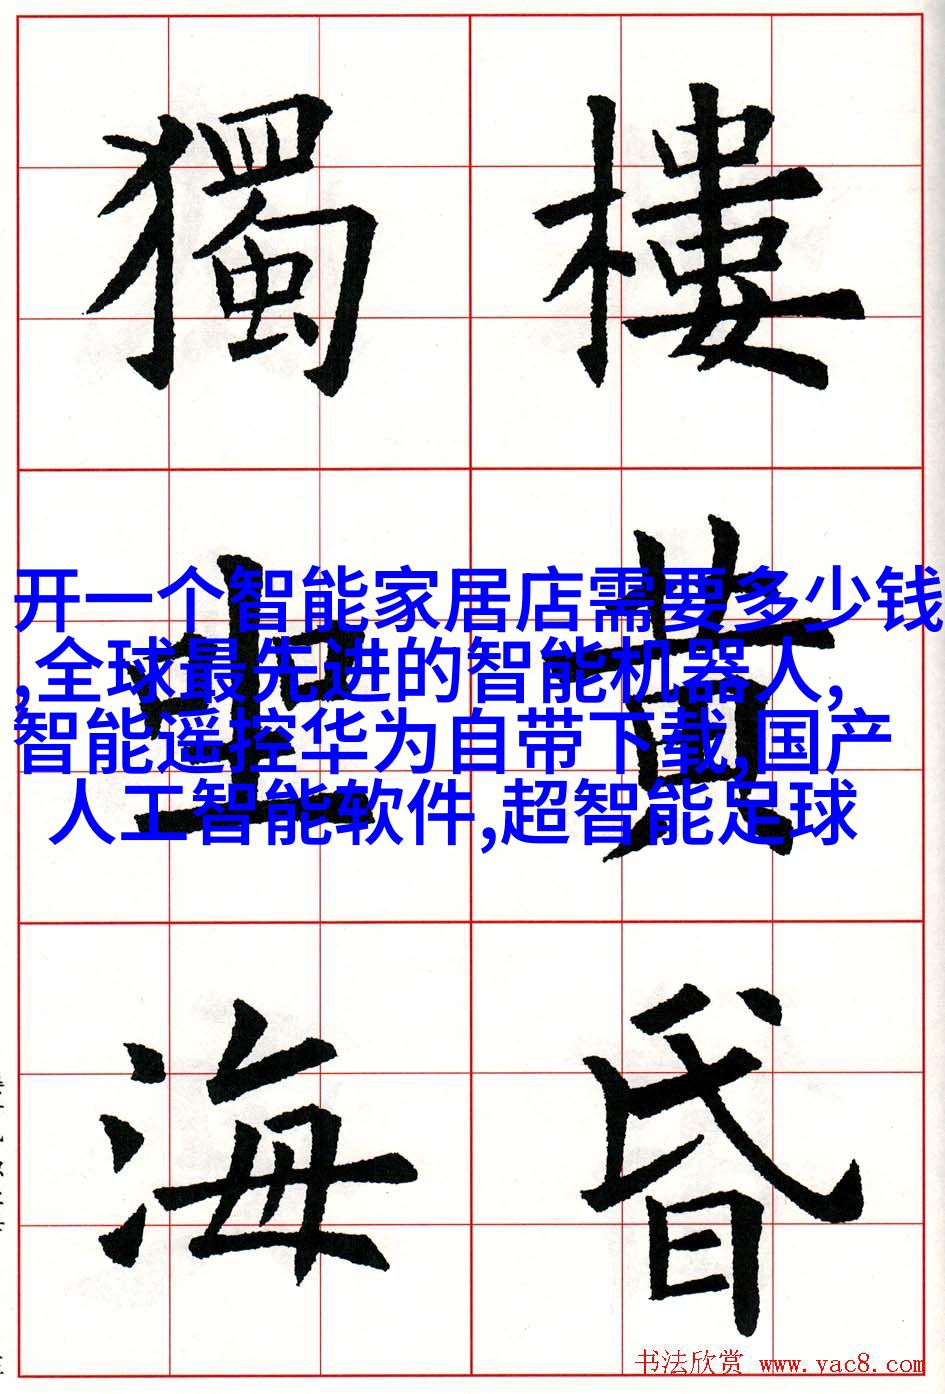 樓黄昏
獨坐海
开一个智能家居店需要多少钱
,全球最先进的智能机器人,
智能遥控华为自带下载,国产
人工智能软件,超智能足球
书法欣赏 www.yac8.com